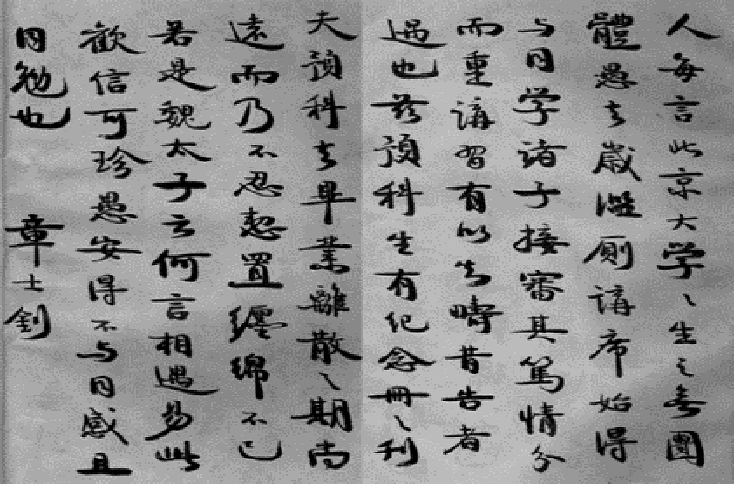 人每言北京大学〻生之无團
體愚去歲濫厠講席始得
与同学诸子接審其篤情分
而重講習有以知疇昔告者
過也茲預科生有纪念冊〻刊
夫預科去畢業離散〻期尚
遠而乃不忍恝置纏绵不已
若是魏太子云何言相遇易此
歡信可珍愚安得不与同感且
同勉也 章士釗